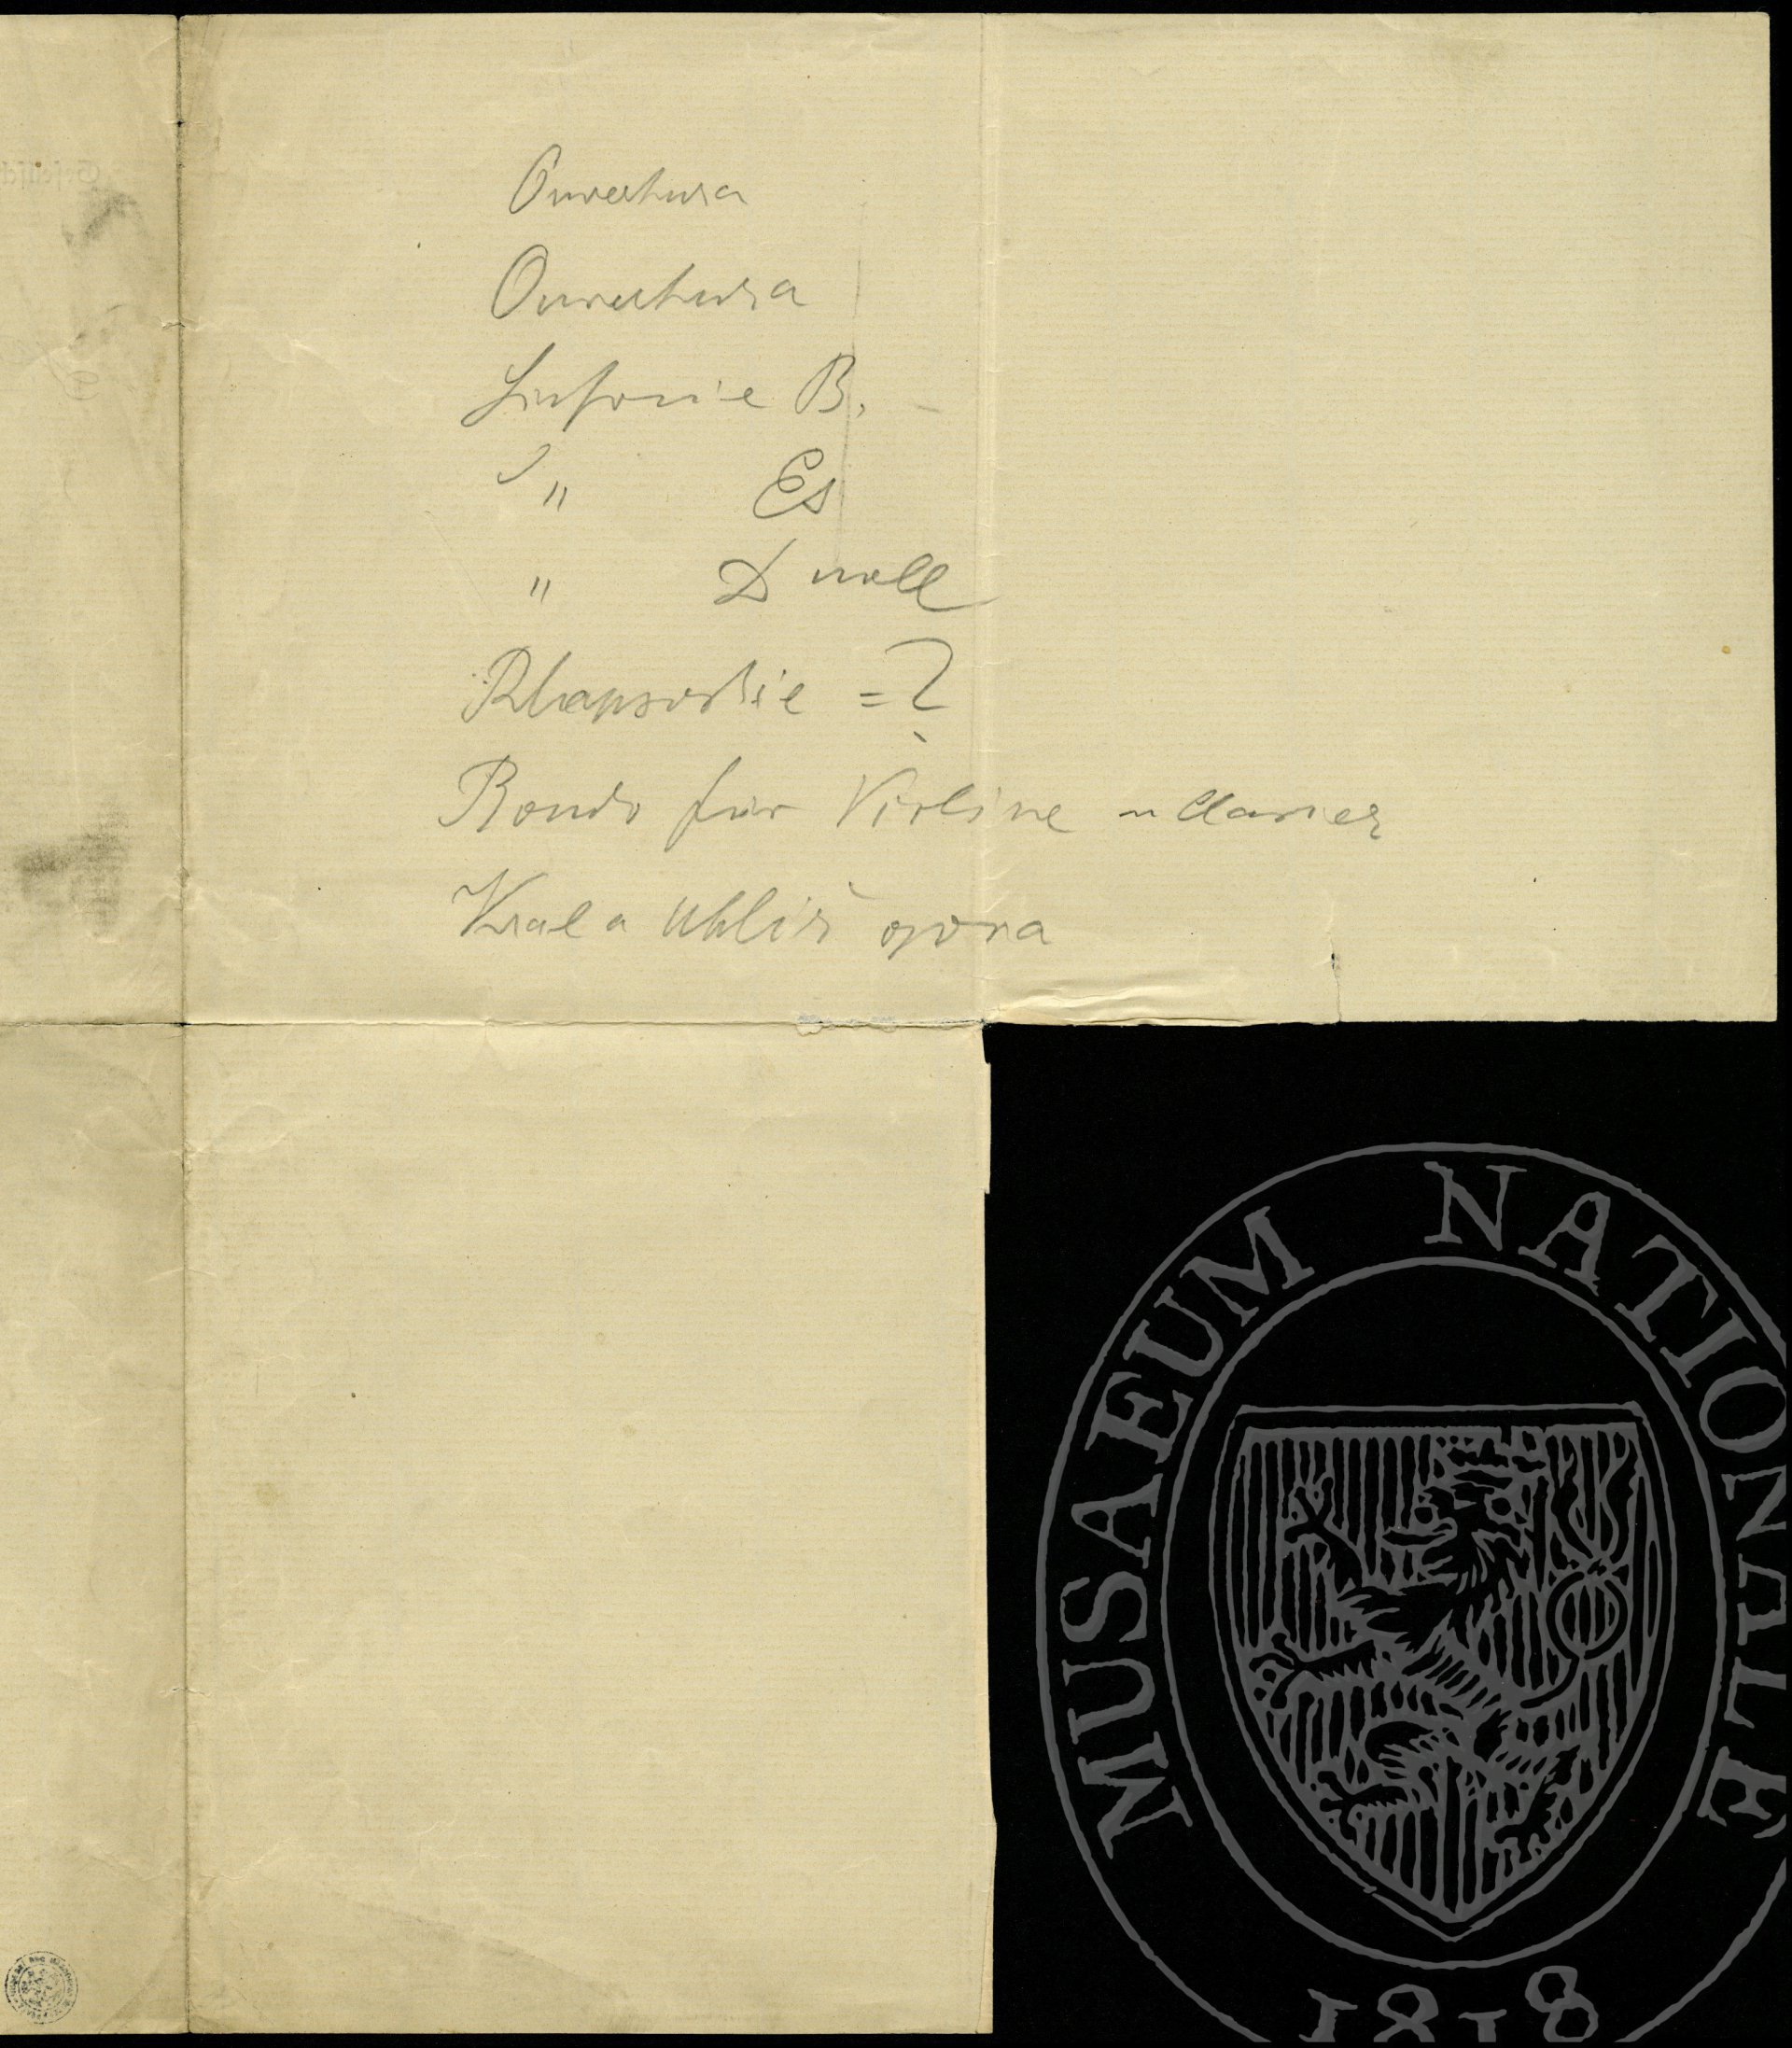 Ouvertura
Ouvertura
Sinfonie B.
" Es
" D moll
Rhapsodie = ?
Rondo für Violine u Clavier
Kral a Uhliř opera
MUSAEUM NATIONALE
1818